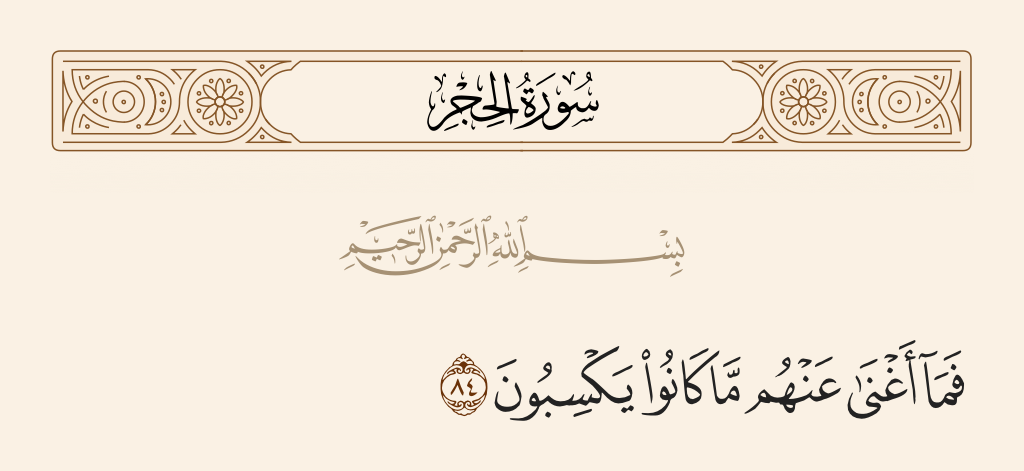 سُورَةُ الحِجْرِ
بِسْمِ ٱللَّهِ ٱلرَّحْمَٰنِ ٱلرَّحِيمِ
فَمَآ أَغْنَىٰ عَنْهُم مَّا كَانُوا۟ يَكْسِبُونَ ٨٤